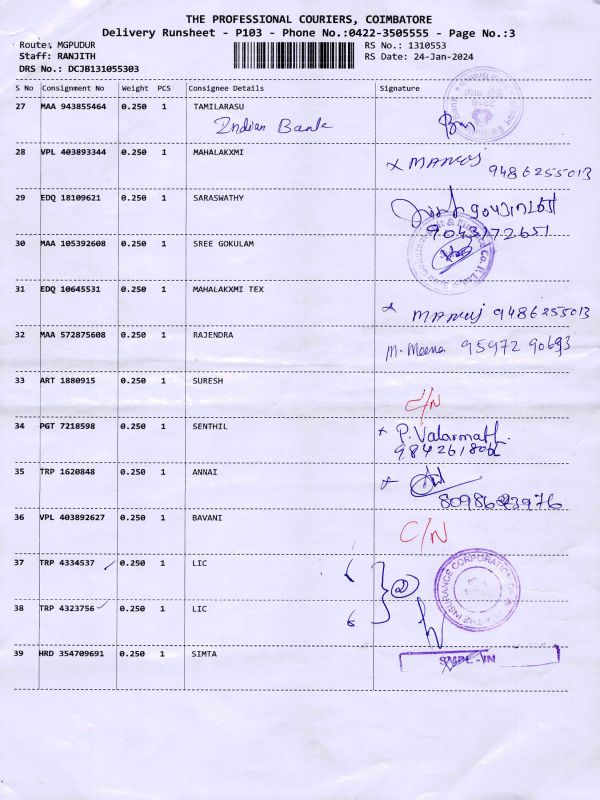 THE PROFESSIONAL COURIERS, COIMBATORE
Delivery Runsheet - P103 - Phone No.:0422-3505555 - Page No.:3
Route: MGPUDUR RS No.: 1310553
Staff: RANJITH RS Date: 24-Jan-2024
DRS No.: DCJB131055303
S No Consignment No Weight PCS Consignee Details Signature
27 MAA 943855464 0.250 1 TAMILARASU
Indian Bank
28 VPL 403893344 0.250 1 MAHALAKXMI
x MANUJ 9486255013
29 EDQ 18109621 0.250 1 SARASWATHY
9043172651
9043172651
30 MAA 105392608 0.250 1 SREE GOKULAM
31 EDQ 10645531 0.250 1 MAHALAKXMI TEX
x MANUJ 9486255013
32 MAA 572875608 0.250 1 RAJENDRA
M. Meena 95972 90693
33 ART 1880915 0.250 1 SURESH
C/N
34 PGT 7218598 0.250 1 SENTHIL
x P. Valarmathi
35 TRP 1620848 0.250 1 ANNAI
x
36 VPL 403892627 0.250 1 BAVANI
C/N
37 TRP 4334537 ✓ 0.250 1 LIC
2
38 TRP 4323756 ✓ 0.250 1 LIC
39 HRD 354709691 0.250 1 SIMTA